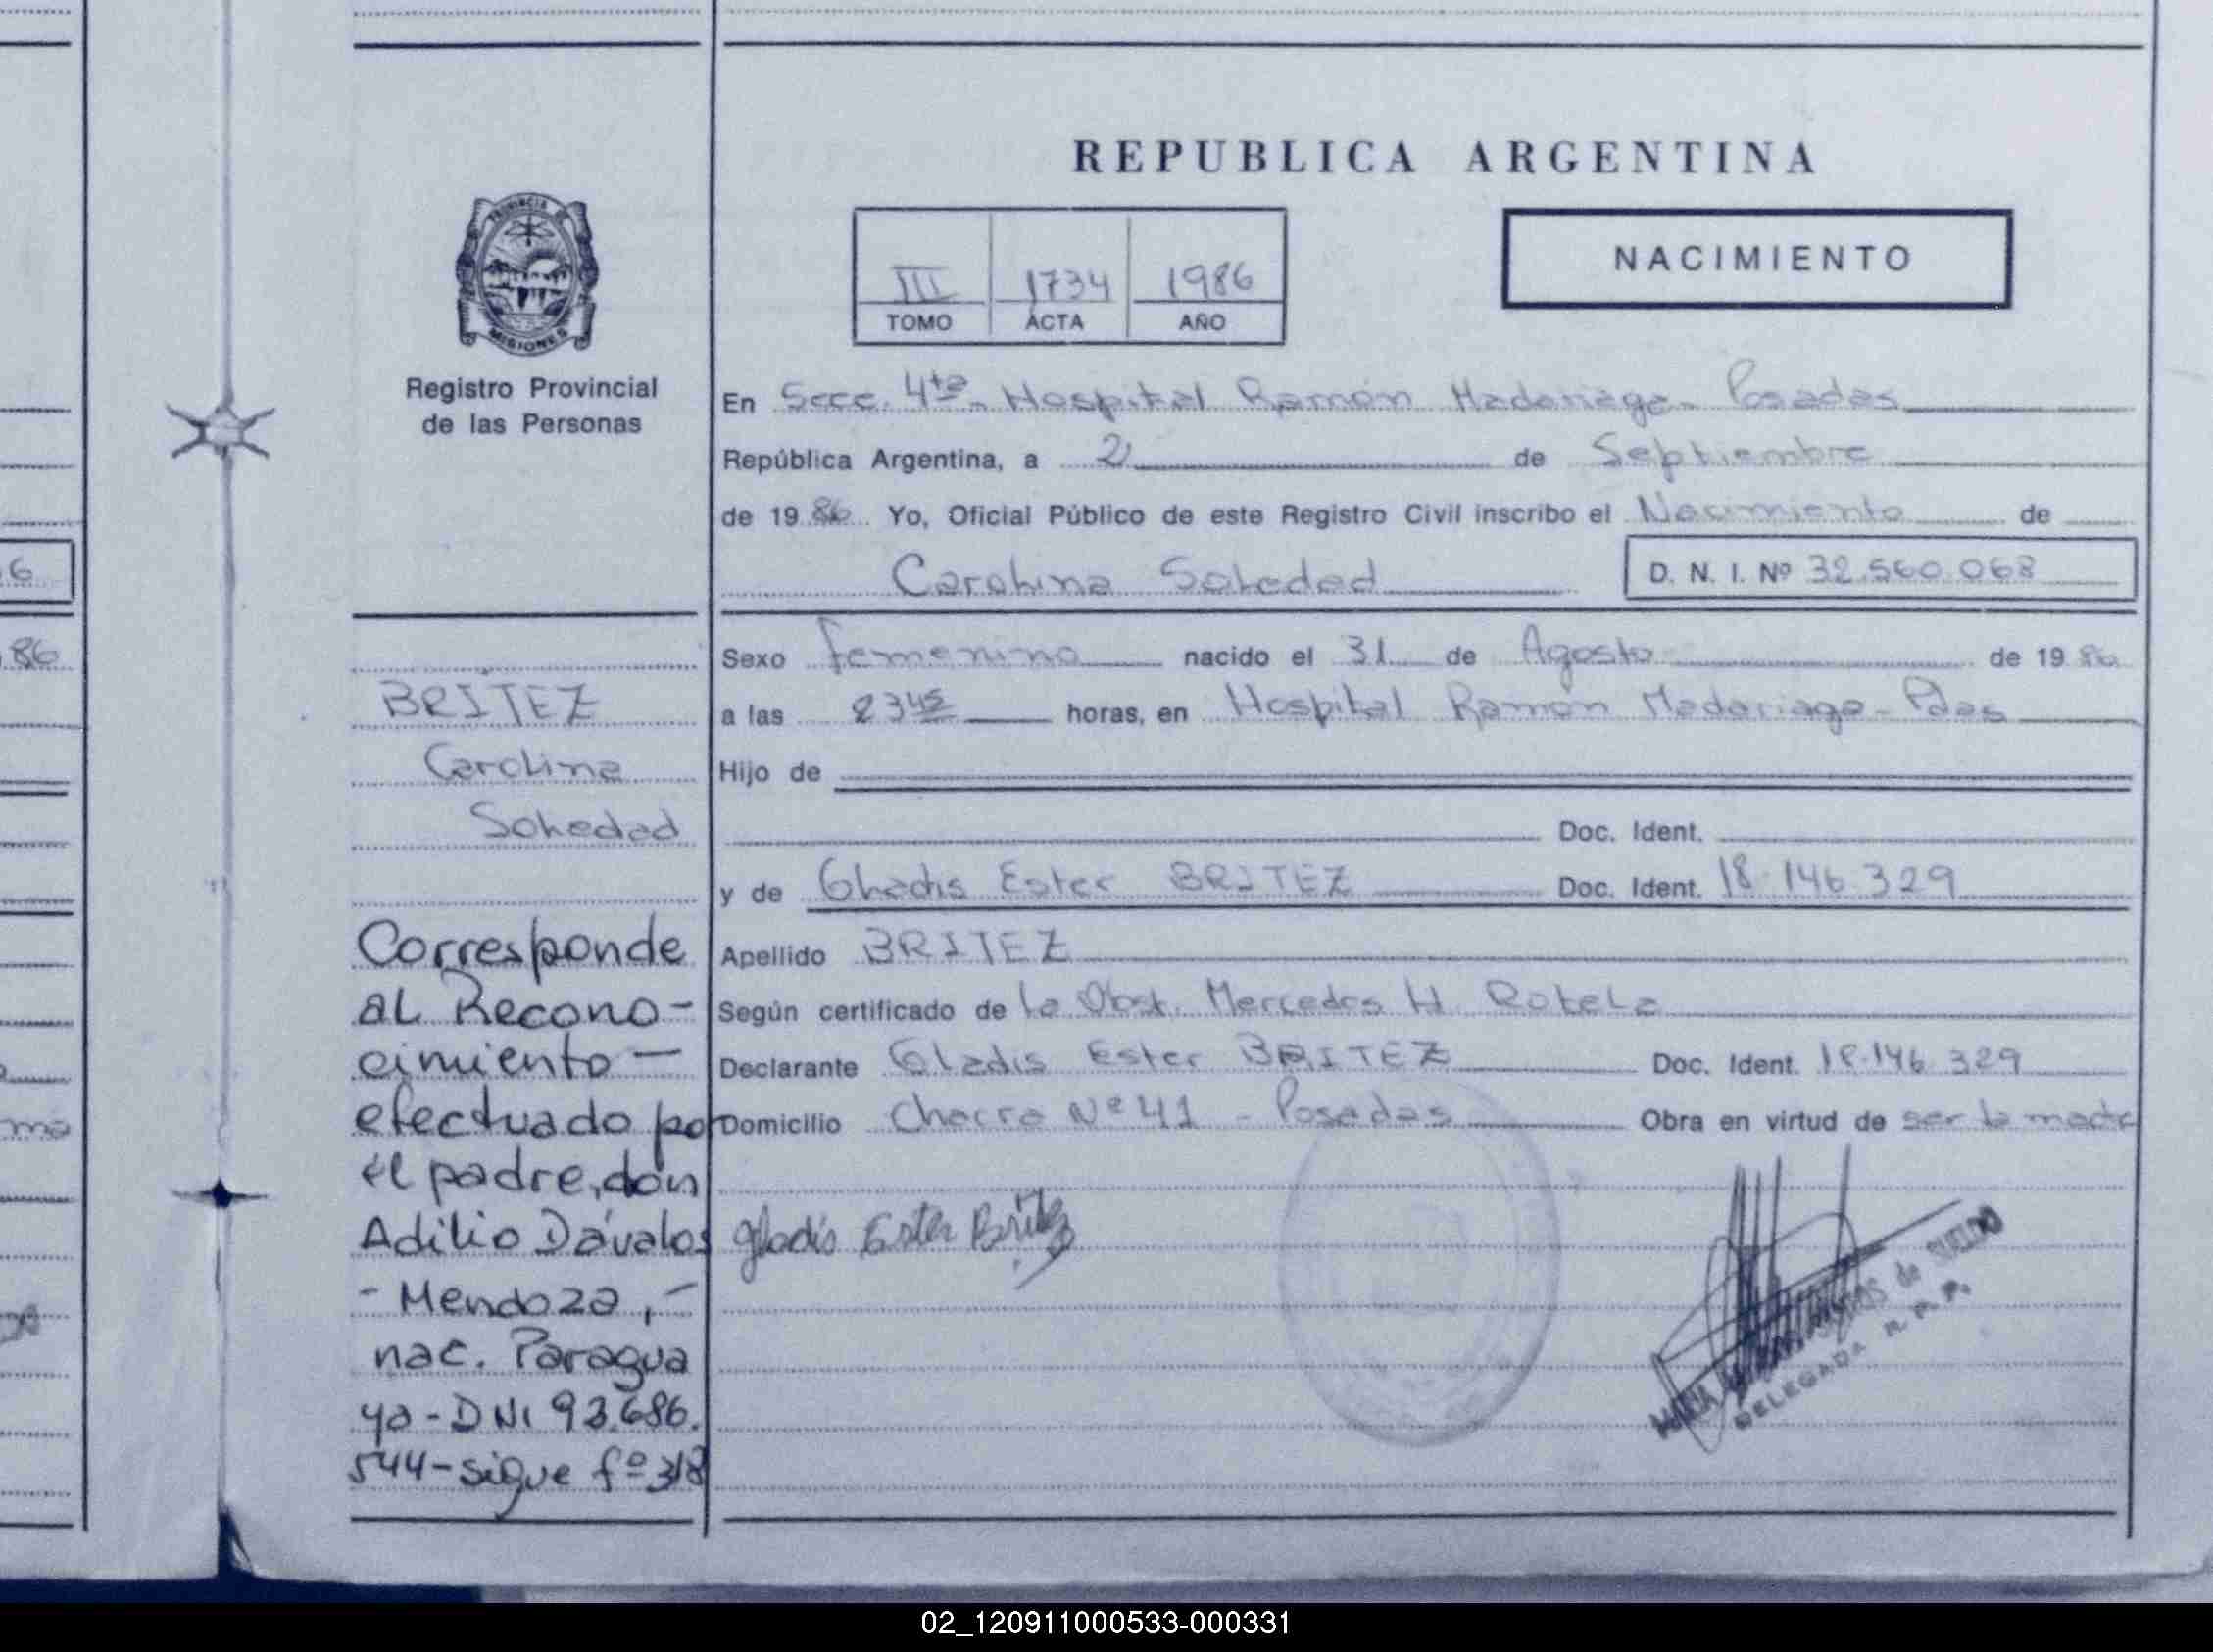 REPUBLICA ARGENTINA
NACIMIENTO
PROVINCIA DE
MISIONES
Registro Provincial
de las Personas
III 1734 1986
TOMO ACTA AÑO
En Secc. 4ta. Hospital Ramón Madariaga - Posadas
República Argentina, a 2 de Septiembre
de 1986 Yo, Oficial Público de este Registro Civil inscribo el Nacimiento de
Carolina Soledad D. N. I. Nº 32.560.068
Sexo femenino nacido el 31 de Agosto de 1986
a las 2345 horas, en Hospital Ramón Madariaga - Pdas
Hijo de
Doc. Ident.
y de Gladis Ester BRITEZ Doc. Ident. 18.146.329
Apellido BRITEZ
Según certificado de la Obst. Mercedes H. Rotela
Declarante Gladis Ester BRITEZ Doc. Ident. 18.146.329
Domicilio Chacra Nº 41 - Posadas Obra en virtud de ser la madre
Gladis Ester Britez
de SUELDO
DELEGADA R. P. P.
BRITEZ
Carolina
Soledad
Corresponde
al Recono-
cimiento -
efectuado por
el padre, don
Adilio Dávalos
- Mendoza, -
nac. Paragua
ya - DNI 93.686.
544 - sigue fº 318
6
86
02_120911000533-000331